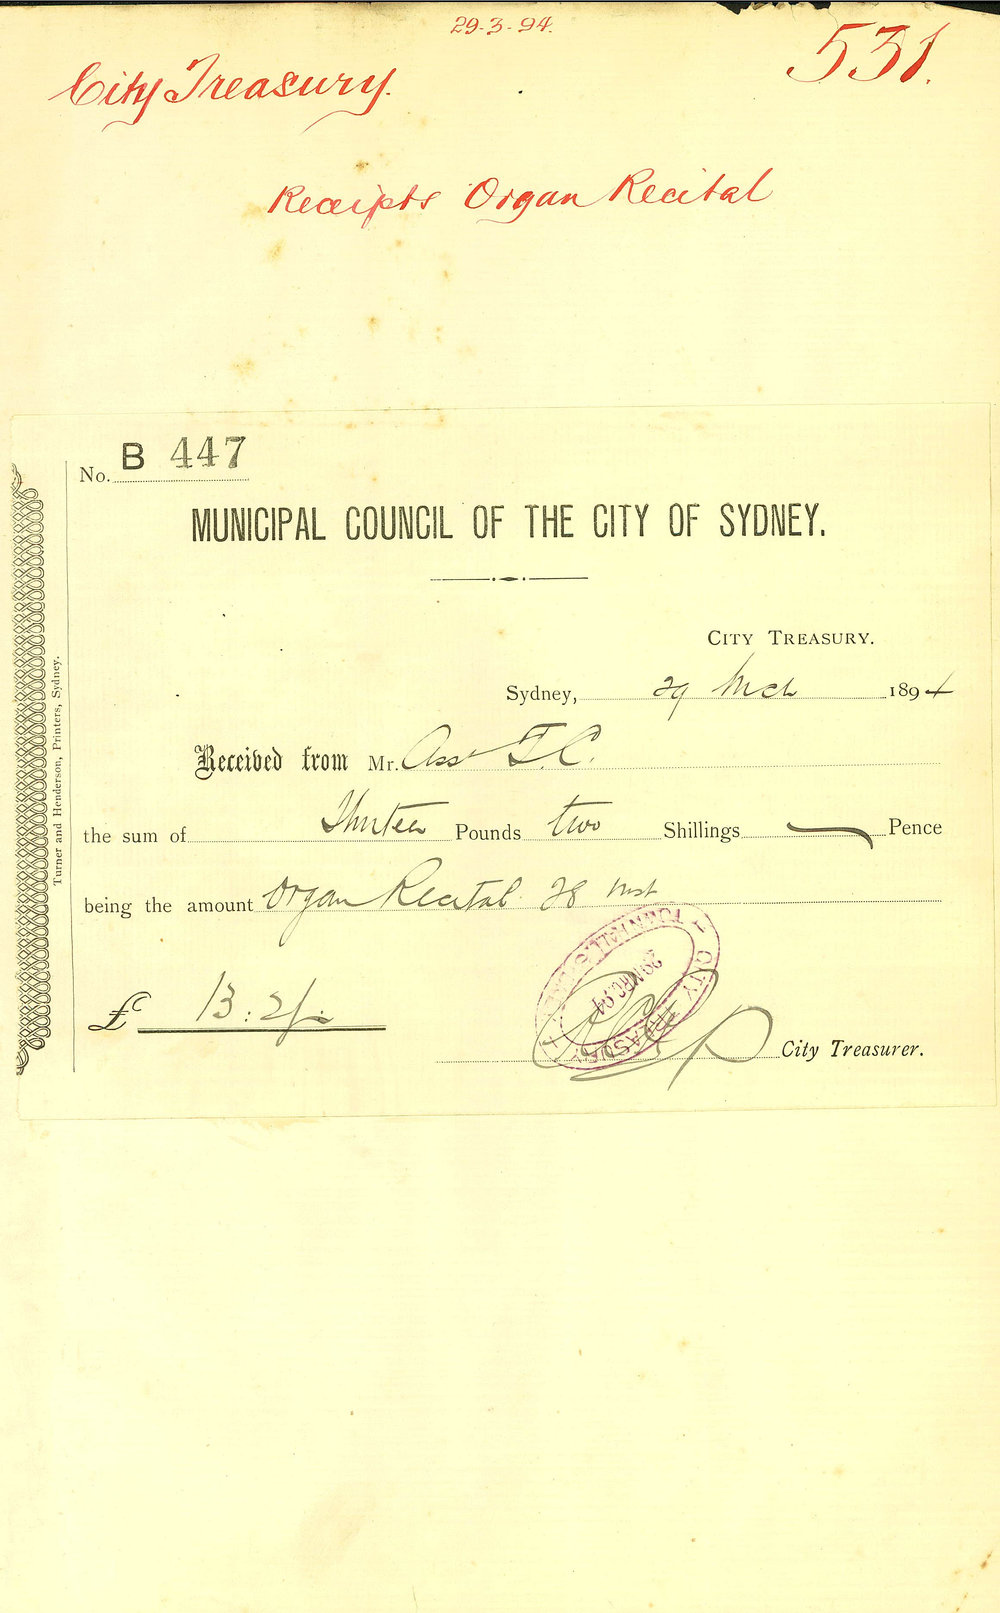 29-3-94.
531.
City Treasury.
Receipts Organ Recital
No. B 447
MUNICIPAL COUNCIL OF THE CITY OF SYDNEY.
CITY TREASURY.
Sydney, 29 Mch 1894
Received from Mr. Asst T.C.
the sum of Thirteen Pounds two Shillings — Pence
being the amount Organ Recital 28 inst
£ 13 : 2/-
City Treasurer.
Turner and Henderson, Printers, Sydney.
TOWN HALL SYDNEY
29 MRC. 94
CITY TREASURY